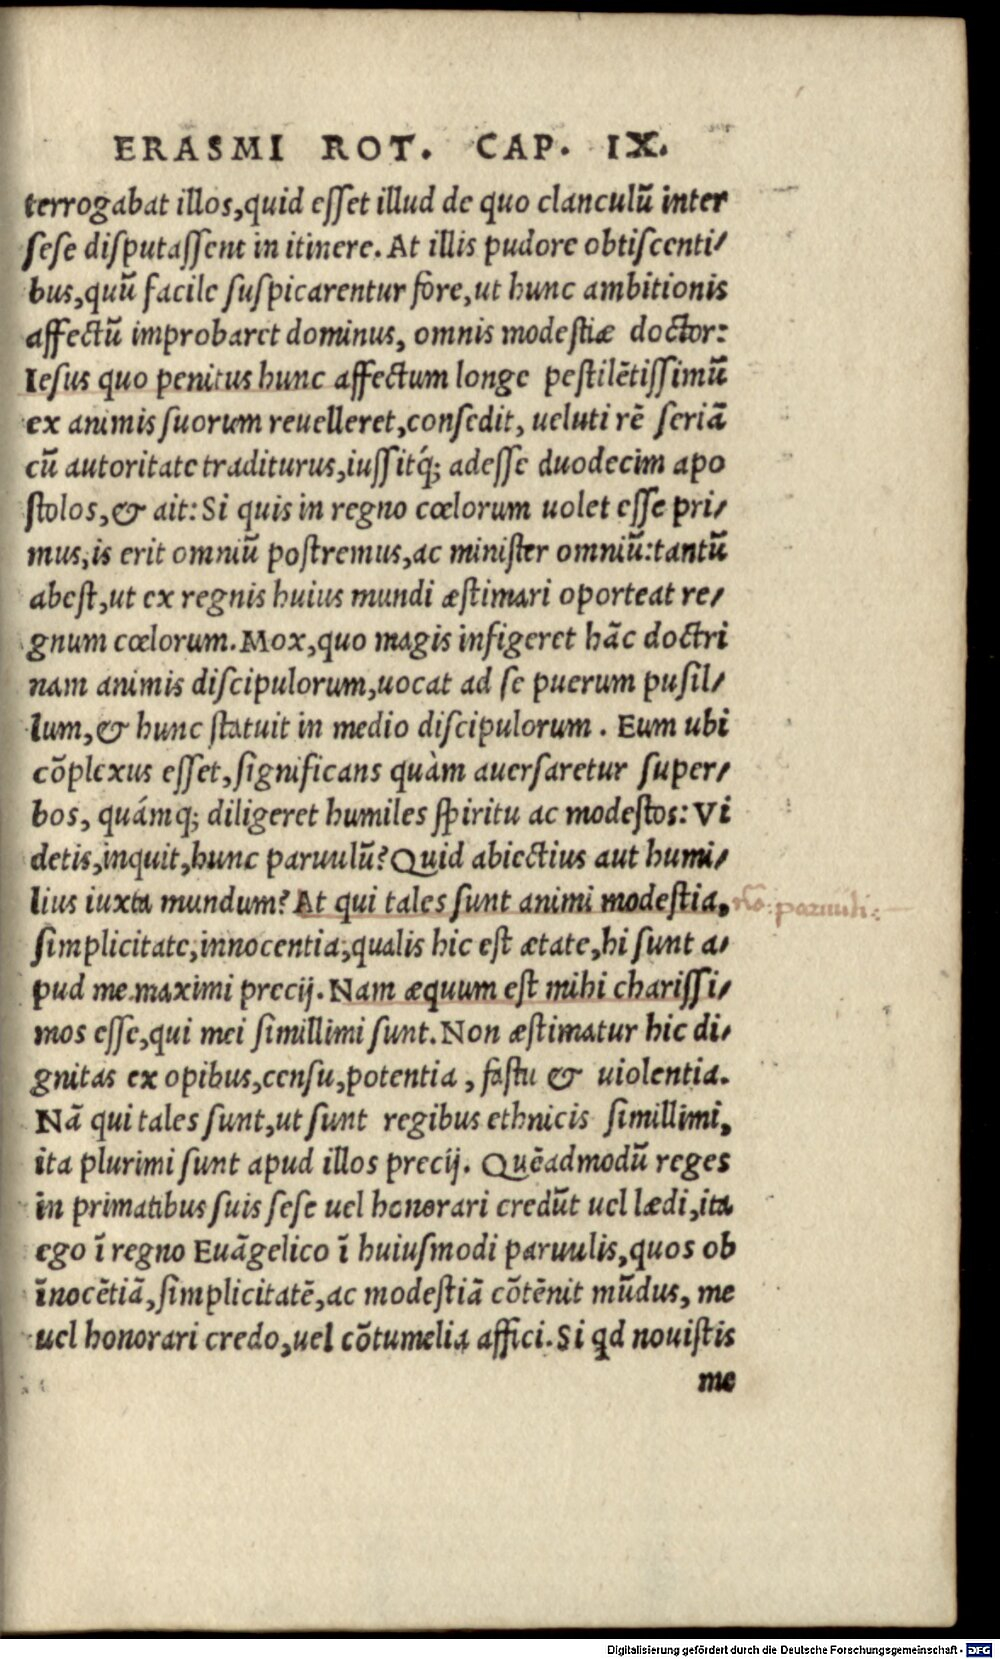 ERASMI ROT. CAP. IX.
terrogabat illos,quid esset illud de quo clanculū inter
sese disputassent in itinere. At illis pudore obtiscenti/
bus,quū facile suspicarentur fore,ut hunc ambitionis
affectū improbaret dominus, omnis modestiæ doctor:
Iesus quo penitus hunc affectum longe pestilētissimū
ex animis suorum reuelleret,consedit, ueluti rē seriā
cū autoritate traditurus,iussitq́; adesse duodecim apo
stolos,& ait: Si quis in regno cœlorum uolet esse pri/
mus,is erit omniū postremus,ac minister omniū:tantū
abest,ut ex regnis huius mundi æstimari oporteat re/
gnum cœlorum. Mox,quo magis infigeret hāc doctri
nam animis discipulorum,uocat ad se puerum pusil/
lum,& hunc statuit in medio discipulorum . Eum ubi
cōplexus esset,significans quàm auersaretur super/
bos, quámq; diligeret humiles spiritu ac modestos: Vi
detis,inquit,hunc paruulū? Quid abiectius aut humi/
lius iuxta mundum? At qui tales sunt animi modestia,
paruuli:
simplicitate,innocentia,qualis hic est ætate,hi sunt a/
pud me maximi precij. Nam æquum est mihi charissi/
mos esse,qui mei simillimi sunt. Non æstimatur hic di/
gnitas ex opibus,censu,potentia , fastu & uiolentia.
Nā qui tales sunt,ut sunt regibus ethnicis simillimi,
ita plurimi sunt apud illos precij. Quēadmodū reges
in primatibus suis sese uel honorari credūt uel lædi,ita
ego ī regno Euāgelico ī huiusmodi paruulis,quos ob
īnocētiā,simplicitatē,ac modestiā cōtēnit mūdus, me
uel honorari credo,uel cōtumelia affici. Si qd nouistis
me
Digitalisierung gefördert durch die Deutsche Forschungsgemeinschaft - DFG